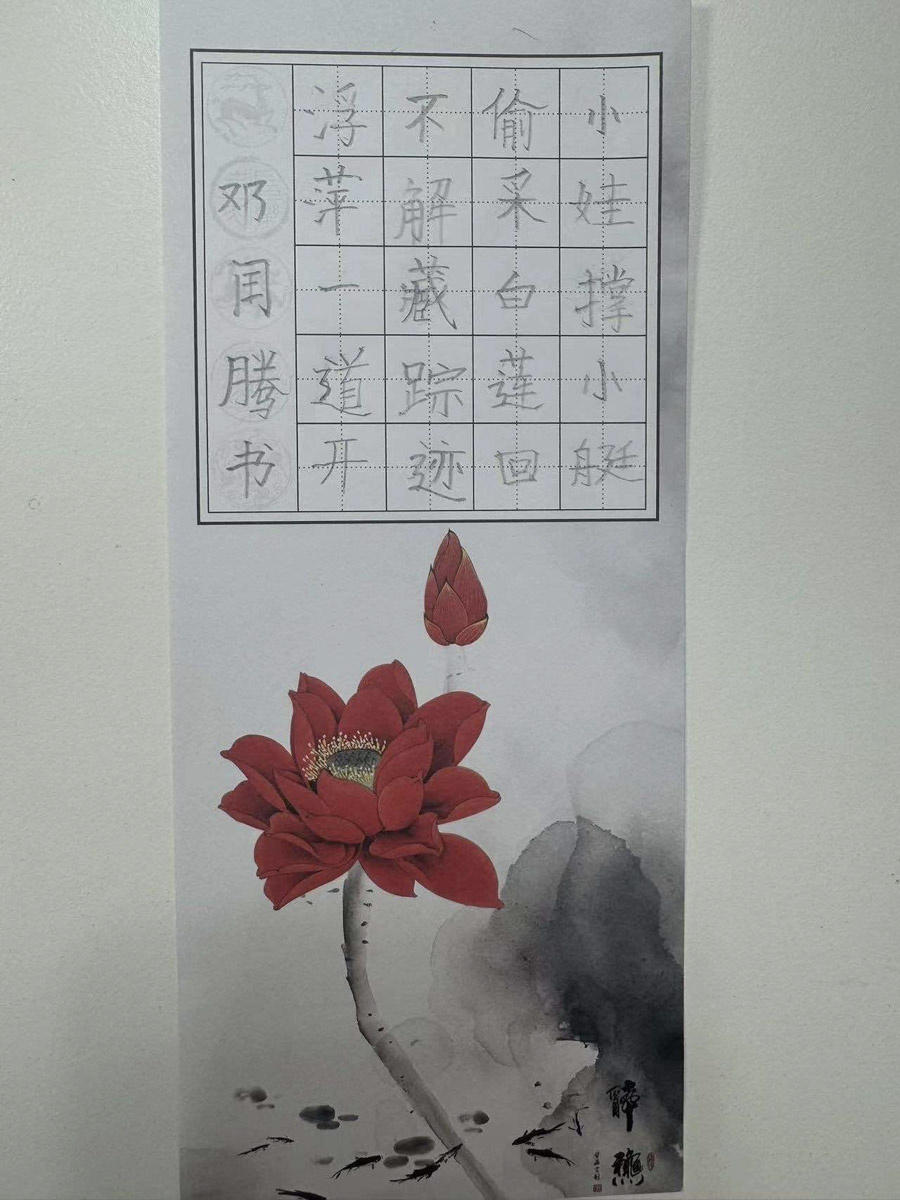 小娃撑小艇
偷采白莲回
不解藏踪迹
浮萍一道开
邓闰腾书